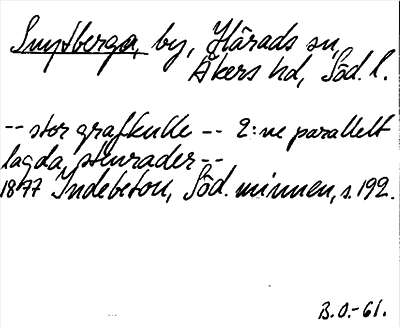 Smytberga, by, Härads sn,
Åkers hd, Söd. l.
-- stor grafkulle -- 2:ne parallelt
lagda stenrader --
1877 Indebetou, Söd. minnen, s. 192.
B.O.-61.